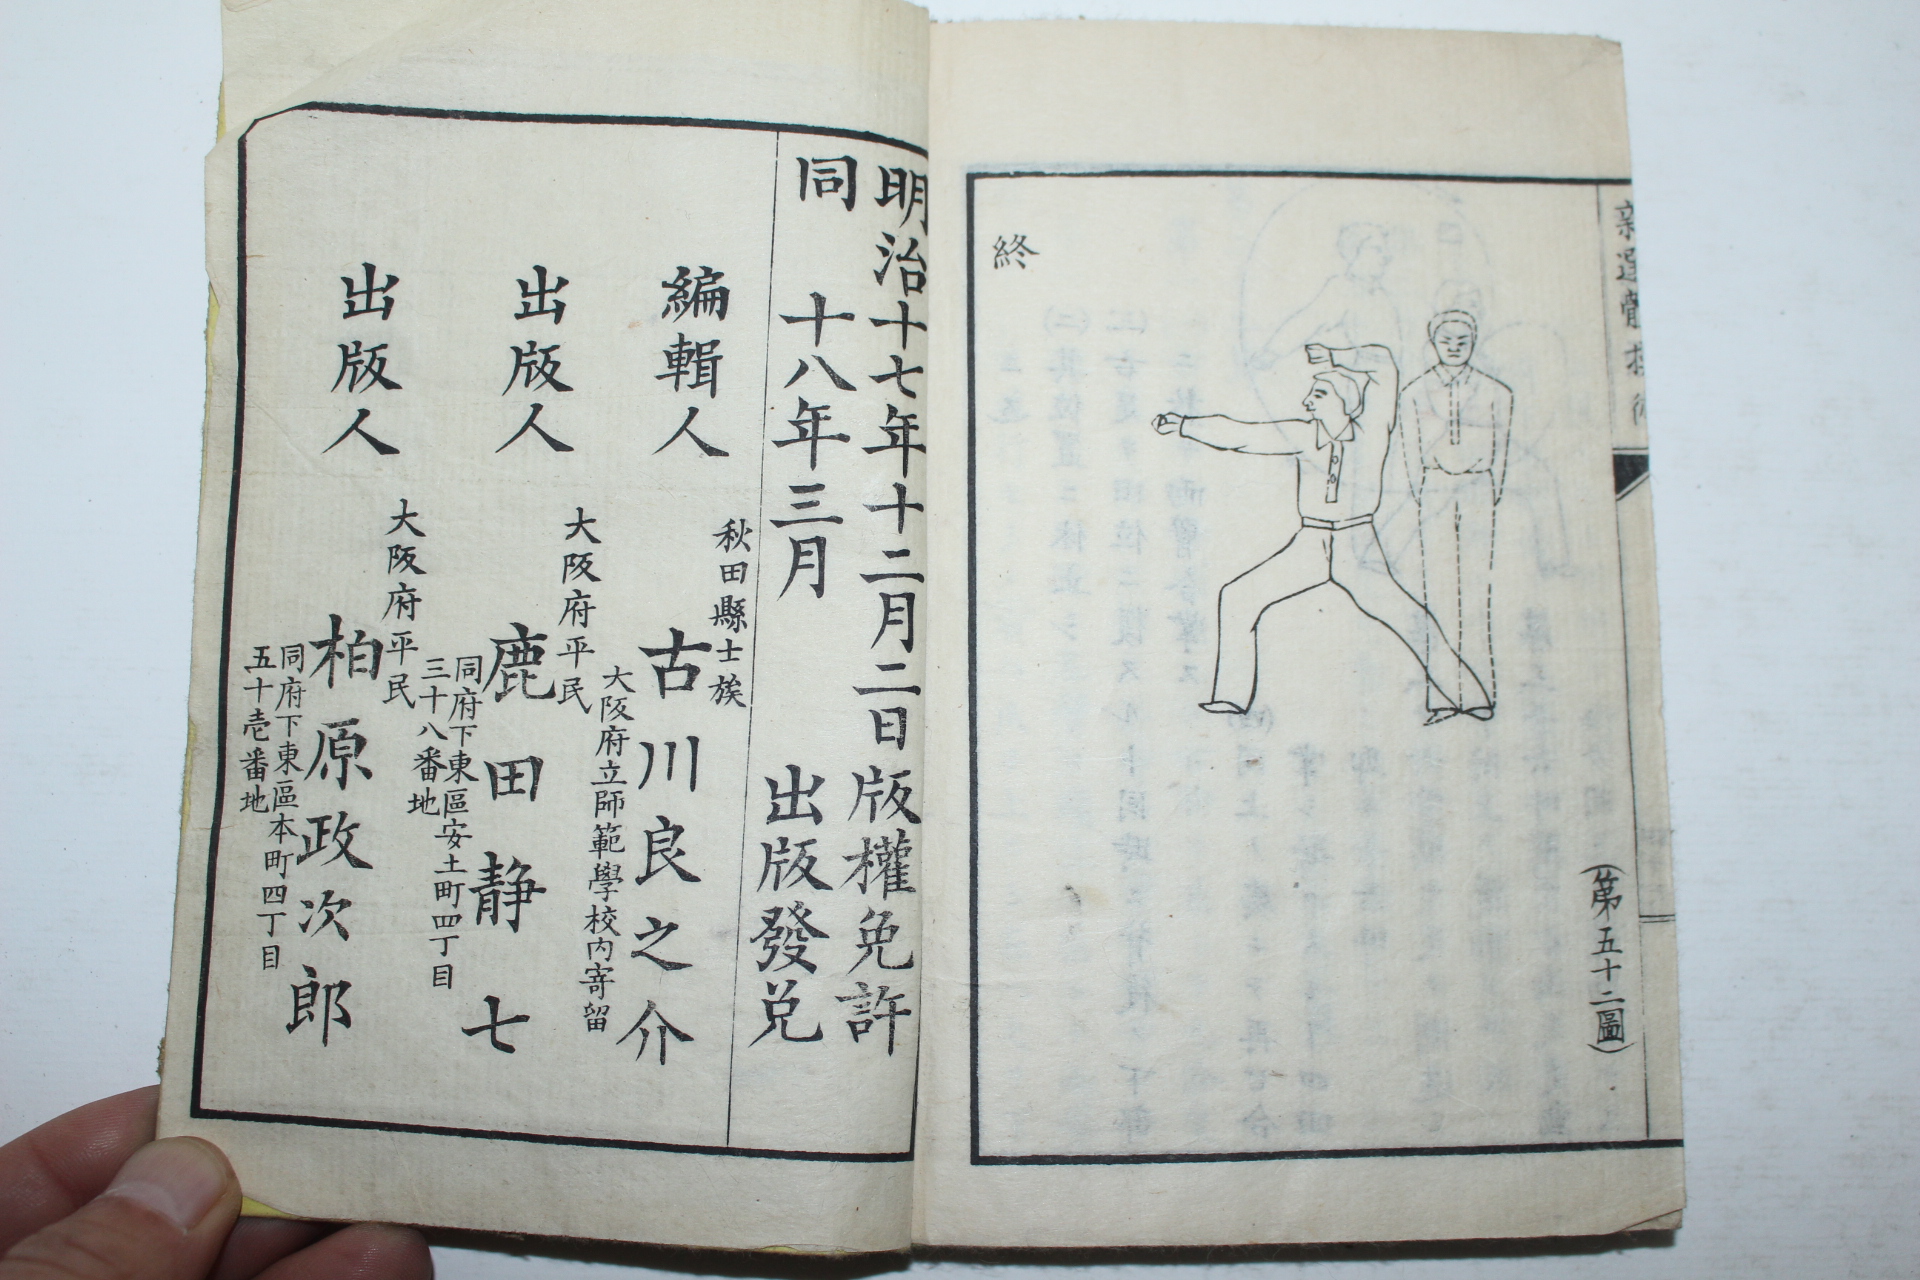 新選體操術
(第五十二圖)
終
明治十七年十二月二日版權免許
同 十八年三月 出版發兌
編輯人 秋田縣士族 古川良之介
大阪府立師範學校内寄留
出版人 大阪府平民 鹿田静七
同府下東區安土町四丁目
三十八番地
出版人 大阪府平民 柏原政次郎
同府下東區本町四丁目
五十壱番地